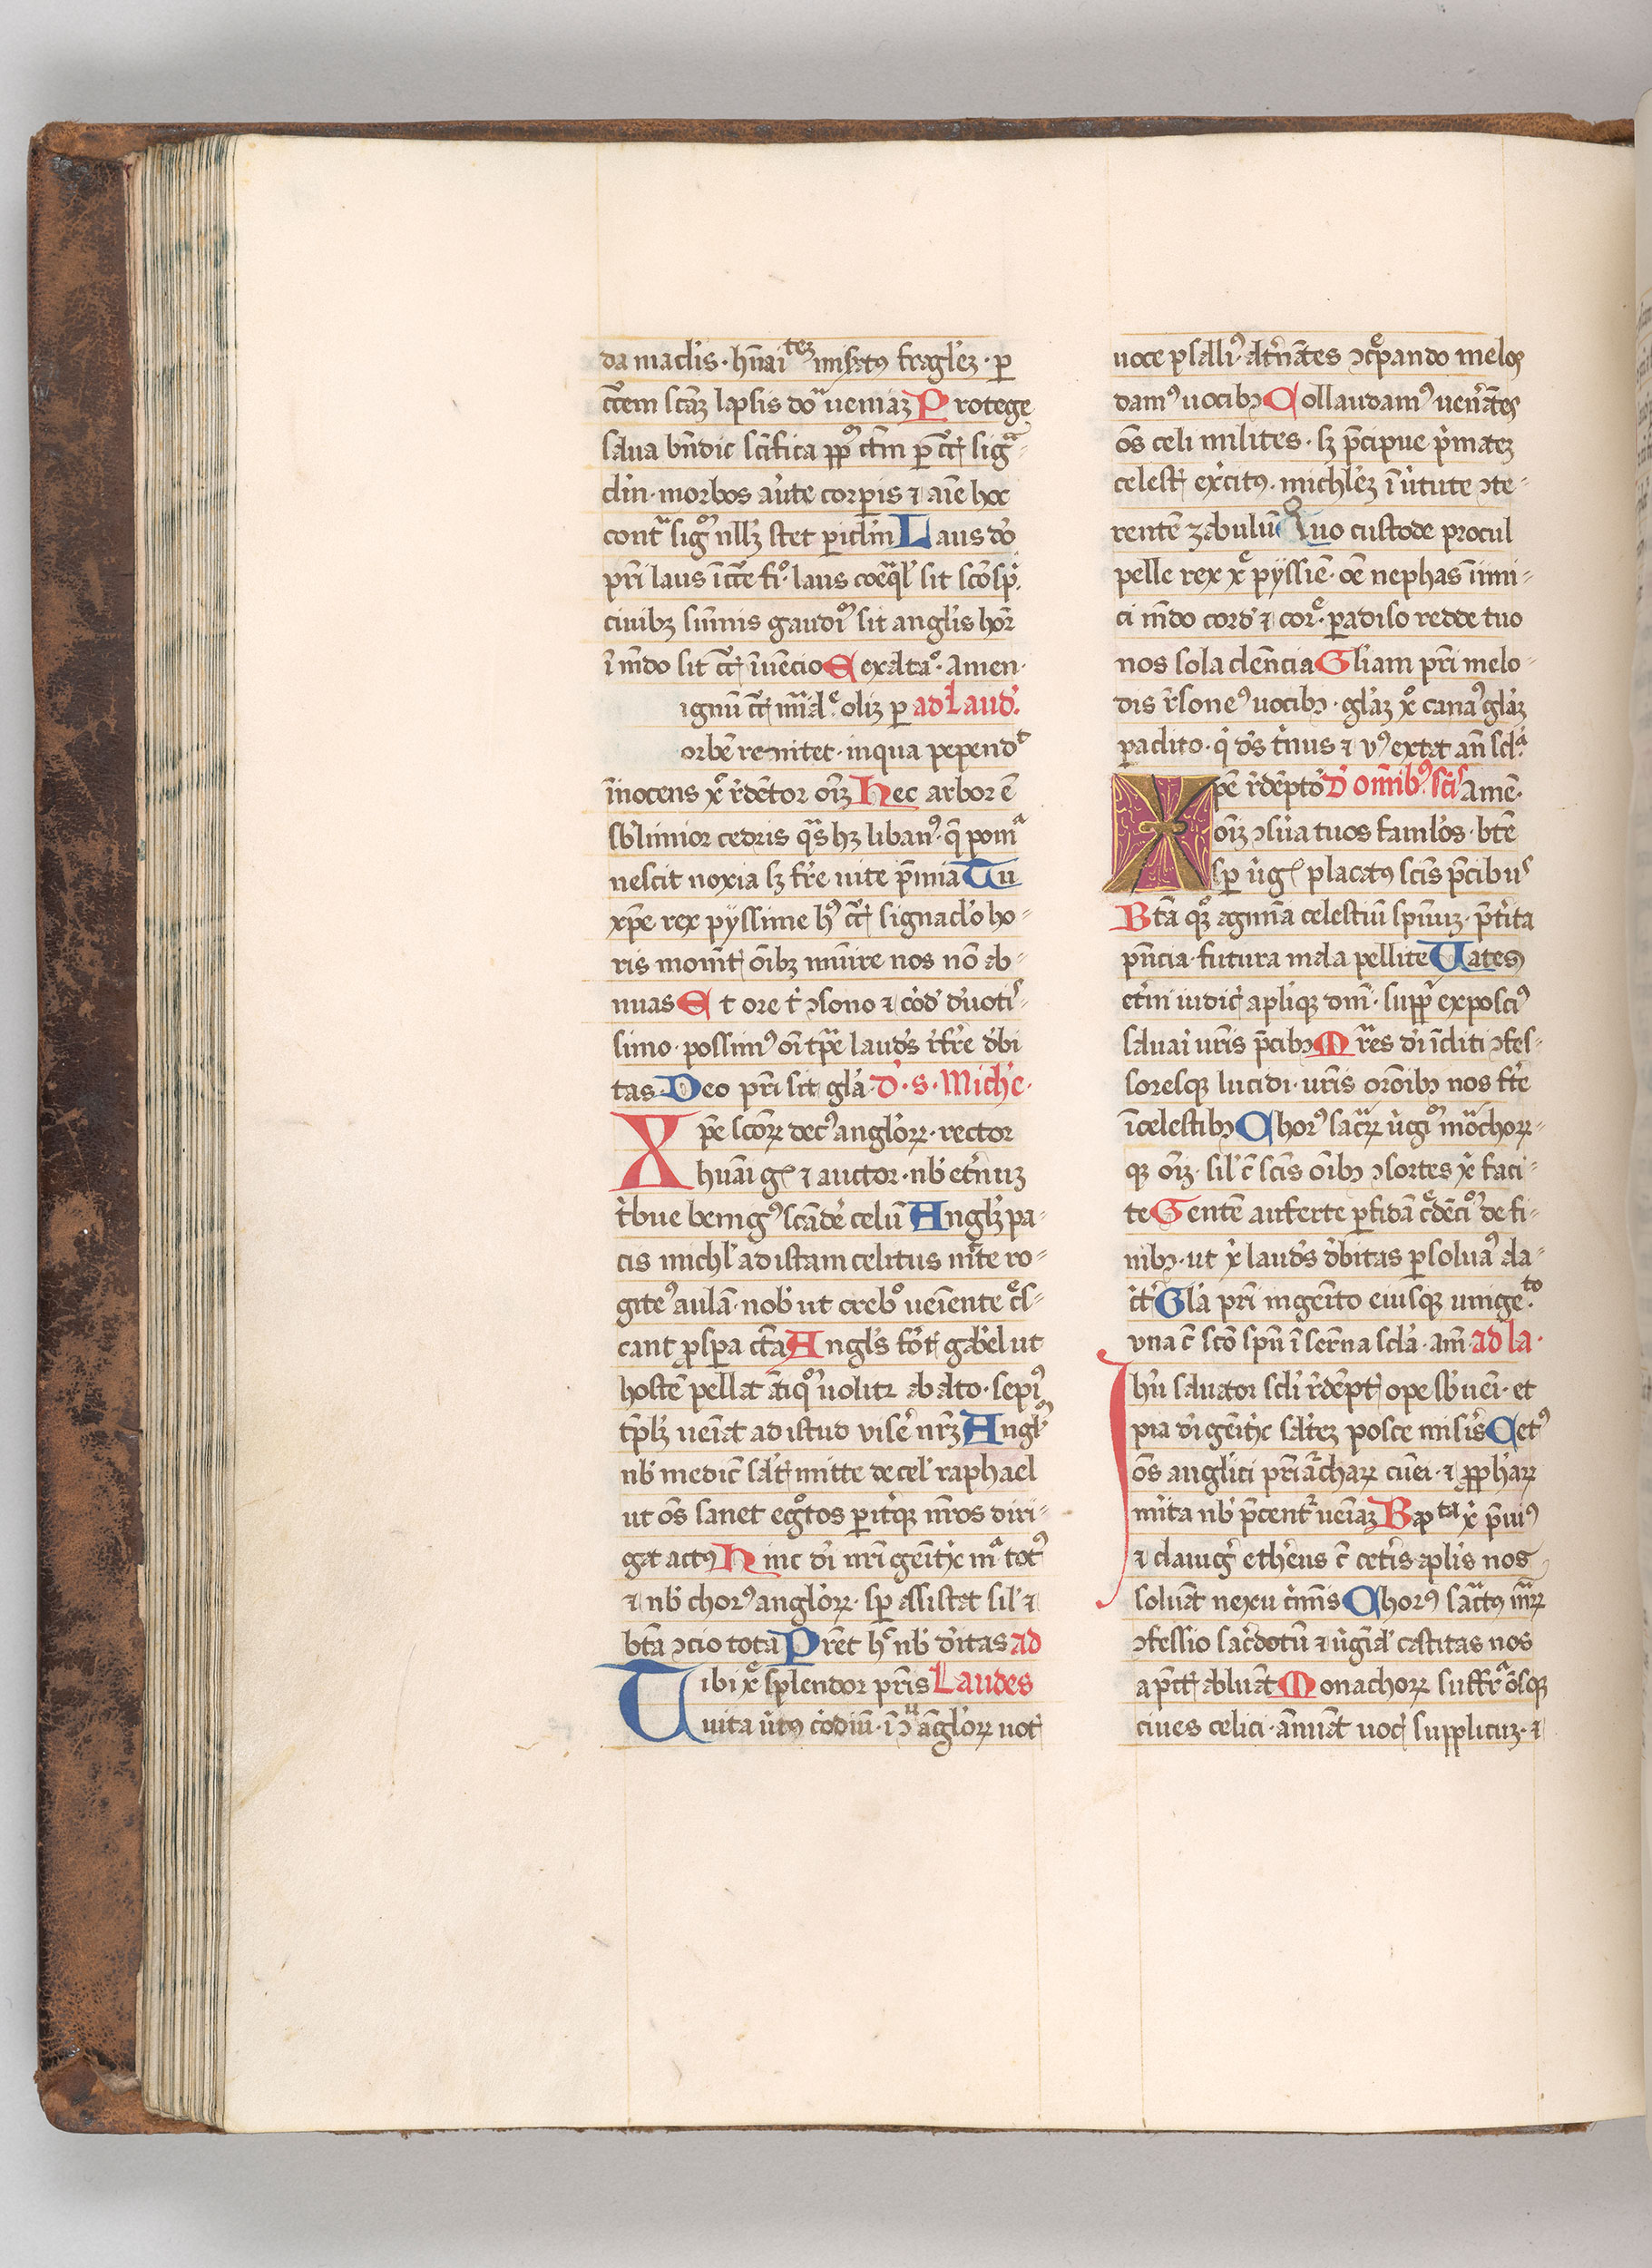 da maclis · hūai tez misatꝰ fragĺez · ꝑ
cc̄em scāz lapsis doᵃ ueniaz Protege
salua bn̄dic sc̄ifica ꝓpᵒ ctm̄ ꝑ cc̄ sigᵃ-
clm̄ · morbos au̓te corꝑis ⁊ aīe hoc
contᵃ sigᵒ nllz stet ꝑiclm̄ Laus do̓
pr̄i laus īcc̄e fiᵒ · laus coeq̄l̓ sit scō sp̄
ciuibz sum̄is gaudiᵒ sit angl̓is hor̄
ī mdo sit cc̄ īuēcio E exaltaᵒ · amen ·
ignū cc̄ mīalᵉ oliz ꝑ ad Laud̓.
orbē renitet · inqua pependᵗ
īnocens xᵒ r̓dētor oīz Hec arbor ē
sb̓limior cedris qᵃs hz libanꝰ · q̄ pomᵃ
nescit noxia sz fr̓e uite p̄mia Tu
xp̄e rex pyssime hꝰ cc̄ signaclo̓ ho-
ris momt̄ oībz mūire nos nō ab-
nuas Et ore t̓ ↄsono ⁊ cod̓ d̓uotiˢ-
simo · possimꝰ oī tp̄e laud̓s r̓fr̓e d̓bi
tas Deo pr̄i sit gl̓a d̓ · s · Mich̓e ·
Xpe scōꝝ decꝰ angl̓oꝝ · rector
hūai gˢ ⁊ auctor · nb̓ et̓nuz
t̓bue benigꝰ scād̓e celū Anglz pa-
cis michl̓ ad istam celitus mīte ro-
giteꝰ aulā · nob̓ ut crebᵒ ueīente cᵉs-
cant ꝓspa ct̄a Angl̓s fort̓ gab̓el ut
hostē pellat ātiqᵒ uolitꝛ ab alto · sepiꝰ
tp̄lz ueīat ad istud vise̓ nr̄z Anglˢ
nb̓ medic̄ salt̓ mitte de cel̓ raphael
ut oēs sanet egᵒtos ꝑit̓qꝫ nr̄os diri-
gat actꝰ Hinc di̓ nr̄i genīt̓c mᵃ totꝰ
⁊ nb̓ chorꝰ angl̓oꝝ · sp̄ assistat sil̓ ⁊
btā ↄcio tota Prēt hᶜ nb̓ d̓itas ad
Tibi xᵉ splendor pr̄is Laudes
uita u̓tꝰ co̓diū · ī ↄᵘ āgl̓oꝝ uot̓
uoce psalliꝰ · alt̓nātes ↄcᵉpando melos
damꝰ uocibꝫ Collaudamꝰ uen̓ātes
oēs celi milites · sz p̄cipue p̓matez
celest̓ ex̓citꝰ · michl̓ez ī u̓tute ↄte-
rentē zabulū Quo custode procul
pelle rex xᵉ pyssīe · oē nephas īimi-
ci mdo cord̓ ⁊ corᵉ · ꝑadiso redde tuo
nos sola clen̄cia Gl̓iam pr̄i melo-
dis r̓soneꝰ uocibꝫ · gl̓az xᵒ canaꝰ gl̓az
ꝑaclito · q̓ d̓s t̓nus ⁊ vꝰ extat an̄ sclᵃ ·
Xpē r̓dēpto̓ D̓ om̄ibꝰ scīs Amē ·
oīz ↄsu̓a tuos famlo̓s · btē
sp̄ u̓gˢ placatꝰ scīs p̄cibuˢ
Btā qᵒꝫ agmīa celestiū spūuz · p̄t̓ita
pn̄cia · futura mala pellite Uates
et̓ni iudic̓ apl̓iqꝫ dm̄i · supp̓ exposciꝰ
saluai ur̄is p̄cibꝫ Mr̄es di̓ īcliti ↄfes-
soresqꝫ lucidi · ur̄is orōibꝫ nos fr̓e
īcelestibꝫ Chorꝰ sacᵃꝝ u̓giᵒ mōchoꝝ-
qꝫ oīz · sil̓ c̄ scīs oībꝫ ↄsortes x̓ faci-
te Gentē auferte ꝑfidā cᵉdēciᵒ de fi-
nibꝫ · ut x̓ laud̓s d̓bitas ꝑsoluaꝰ ala-
c̓t̓ Gl̓a pr̄i ingeīto eiusqꝫ unige ᵗᵒ
vna c̄ scō spū ī sēp̄na scl̓a · am̄ · ad la ·
Ihū saluator scl̓i r̓dēpt̓ ope sb̓ueī · et
pia di̓ gēit̓c salt̓ez posce misi̓s Cetꝰ
oēs anglici pr̄iᵃchaꝝ cūei · ⁊ ꝓph̓aꝝ
mi̓ta nb̓ p̄cent̓ ueīaz Bapta x̓ p̄uiꝰ
⁊ clauig̓ eth̓eus c̄ cet̓is apl̓is nos
soluāt nexu c̓mīs Chorꝰ sac̄tꝰ mr̄ꝝ
ↄfessio sac̓dotū ⁊ u̓gīal̓ castitas nos
a p̄cc̄ abluāt Monachoꝝ suffrᵃ oēsqꝫ
ciues celici · ānuāt uoc̓ supplicuz · ⁊